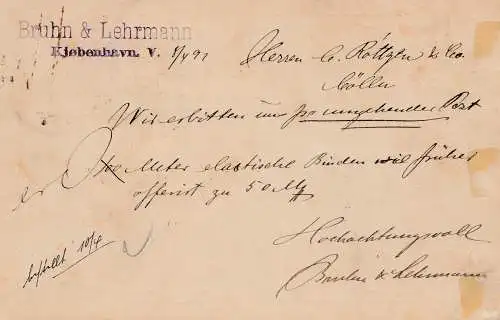 Bruhn & Lehrmann
Kjøbenhavn. V. 8/4 92
Herren C. Röttgen & Co.
Cölln
Wir erbitten um per umgehender Post
Meter elastische Binden wie früher
offerirt zu 50 M
Hochachtungsvoll
Bruhn & Lehrmann
10/4